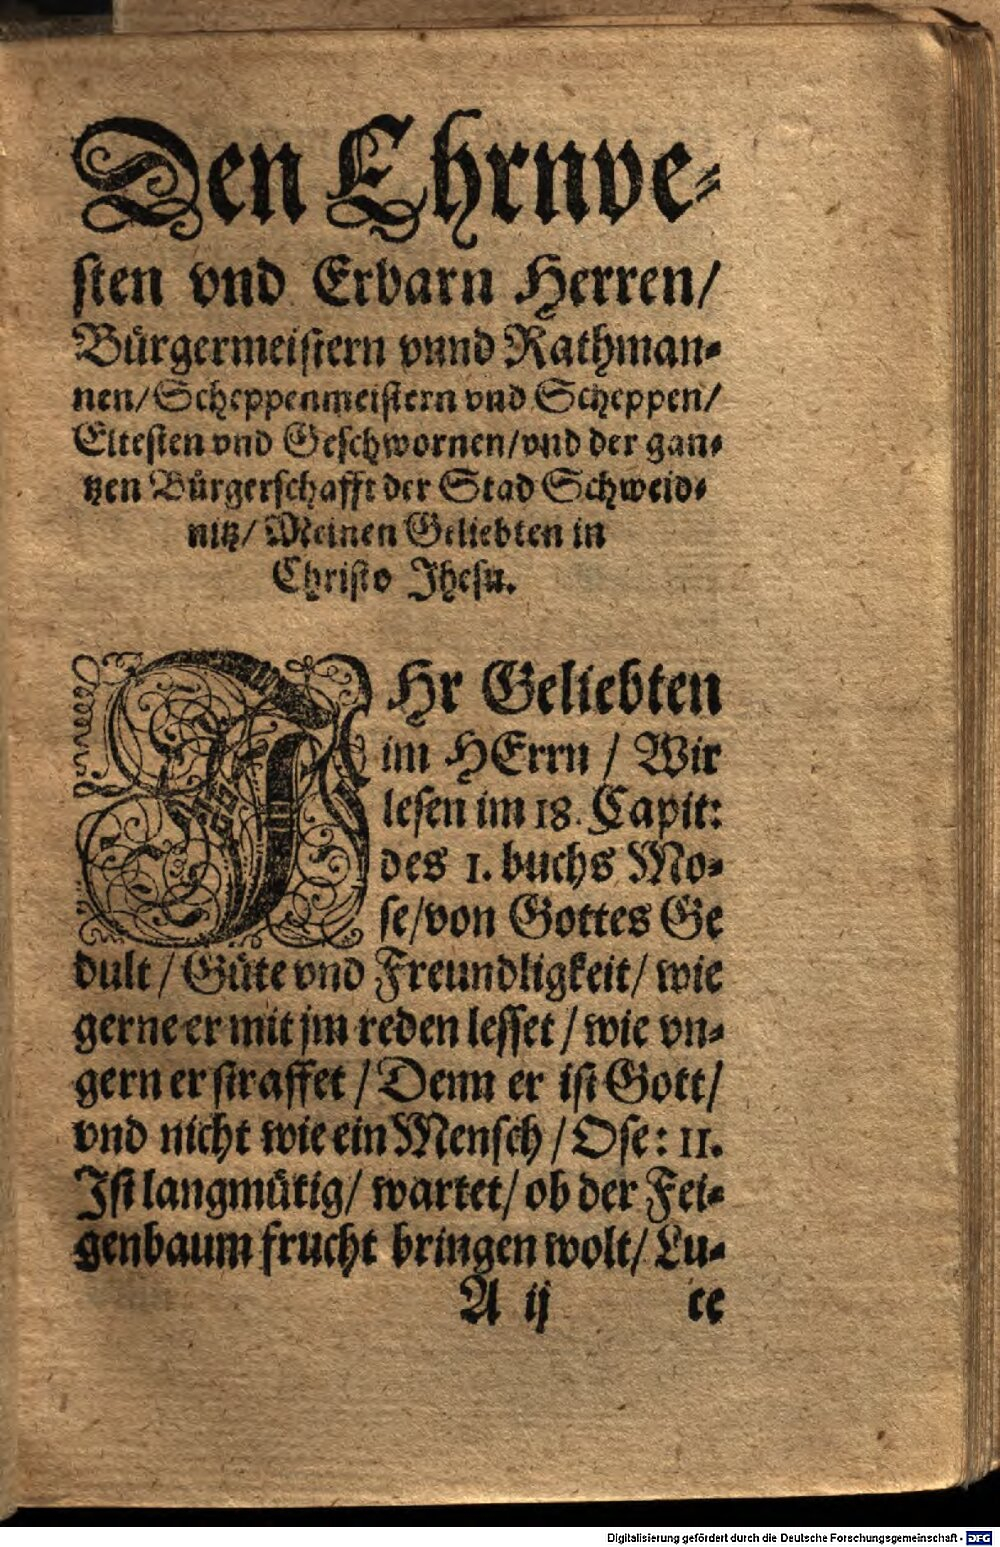 Den Ehrnve-
sten vnd Erbarn Herren/
Bürgermeistern vnnd Rathman-
nen/ Scheppenmeistern vnd Scheppen/
Eltesten vnd Geschwornen/ vnd der gan-
tzen Bürgerschafft der Stad Schweid-
nitz/ Meinen Geliebten in
Christo Jhesu.
IHr Geliebten
im HErrn / Wir
lesen im 18. Capit:
des 1. buchs Mo-
se/ von Gottes Ge
dult / Güte vnd Freundligkeit/ wie
gerne er mit jm reden lesset / wie vn-
gern er straffet / Denn er ist Gott/
vnd nicht wie ein Mensch / Ose: 11.
Ist langmütig/ wartet/ ob der Fei-
genbaum frucht bringen wolt/ Lu-
A ij ce
Digitalisierung gefördert durch die Deutsche Forschungsgemeinschaft - DFG